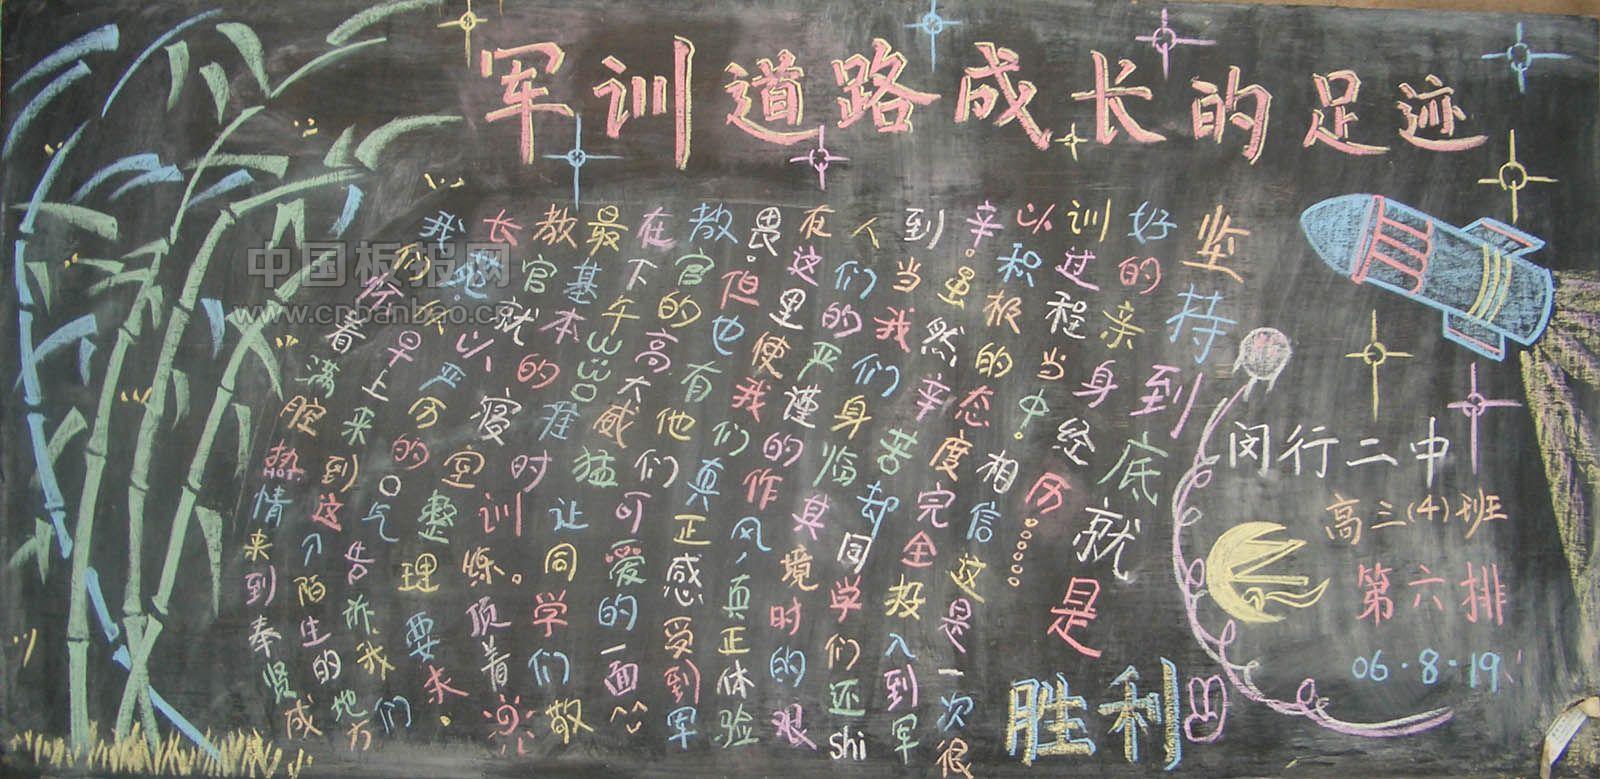 军训道路成长的足迹
我们怀着满腔热情来到奉贤成
长地。今早上来到这个陌生的地方
教官就以严厉的口气告诉我们
最基本的寝室整理要求。
在下午3:30准时训练。顶着
教官的高大威猛让同学们敬
畏。但也有他们可爱的一面
在这里使我们真正感受到军
人们的严谨的作风,真正体验
到当我们身临其境时的艰
辛。虽然辛苦却同学们还shi
以积极的态度完全投入到军
训过程当中。相信这是一次很
好的亲身经历……
坚持到底就是
胜利
HOT
闵行二中
高三(4)班
第六排
06.8.19
中国板报网
www.cnbanbao.cn